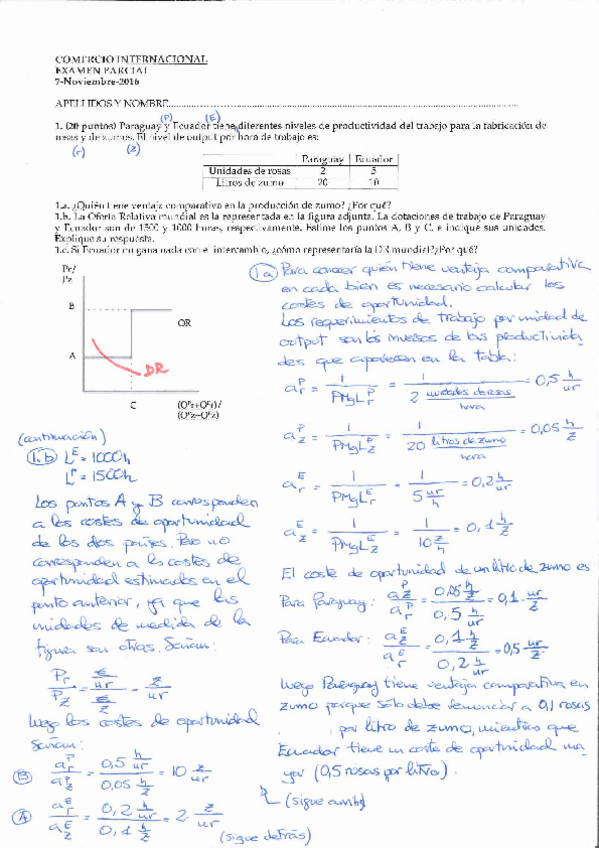 COMERCIO INTERNACIONAL
EXAMEN PARCIAL
7-Noviembre-2016
APELLIDOS Y NOMBRE
(P) (E)
1. (20 puntos) Paraguay y Ecuador tiene diferentes niveles de productividad del trabajo para la fabricación de
rosas y de zumos. El nivel de output por hora de trabajo es:
(r) (z)
Paraguay Ecuador
Unidades de rosas 2 5
Litros de zumo 20 10
1.a. ¿Quién tiene ventaja comparativa en la producción de zumo? ¿Por qué?
1.b. La Oferta Relativa mundial es la representada en la figura adjunta. La dotaciones de trabajo de Paraguay
y Ecuador son de 1500 y 1000 horas, respectivamente. Estime los puntos A, B y C, e indique sus unidades.
Explique su respuesta.
1.c. Si Ecuador no gana nada con el intercambio, ¿cómo representaría la DR mundial? ¿Por qué?
Pr/
Pz
B
OR
A
DR
C
(Qᴾr+Qᴱr)/
(Qᴾz+Qᴱz)
1a) Para conocer quién tiene ventaja comparativa
en cada bien es necesario calcular los
costes de oportunidad.
Los requerimientos de trabajo por unidad de
output son los inversos de las productivida
des que aparecen en la tabla:
aᴾr = 1 / PMgLᴾr = 1 / 2 unidades de rosas/hora = 0,5 h/ur
aᴾz = 1 / PMgLᴾz = 1 / 20 litros de zumo/hora = 0,05 h/z
aᴱr = 1 / PMgLᴱr = 1 / 5 ur/h = 0,2 h/ur
aᴱz = 1 / PMgLᴱz = 1 / 10 z/h = 0,1 h/z
El coste de oportunidad de un litro de zumo es
Para Paraguay: aᴾz / aᴾr = 0,05 h/z / 0,5 h/ur = 0,1 ur/z
Para Ecuador: aᴱz / aᴱr = 0,1 h/z / 0,2 h/ur = 0,5 ur/z
luego Paraguay tiene ventaja comparativa en
zumo porque sólo debe renunciar a 0,1 rosas
por litro de zumo, mientras que
Ecuador tiene un coste de oportunidad ma
yor (0,5 rosas por litro).
(sigue arriba)
(continuación)
1.b) Lᴱ = 1000h
Lᴾ = 1500h
Los puntos A y B corresponden
a los costes de oportunidad
de los dos países. Pero no
corresponden a los costes de
oportunidad estimados en el
punto anterior, ya que las
unidades de medida de la
figura son otras. Serían:
Pr / Pz = €/ur / €/z = z/ur
luego los costes de oportunidad
serían:
B) aᴾr / aᴾz = 0,5 h/ur / 0,05 h/z = 10 z/ur
A) aᴱr / aᴱz = 0,2 h/ur / 0,1 h/z = 2 z/ur
(sigue detrás)